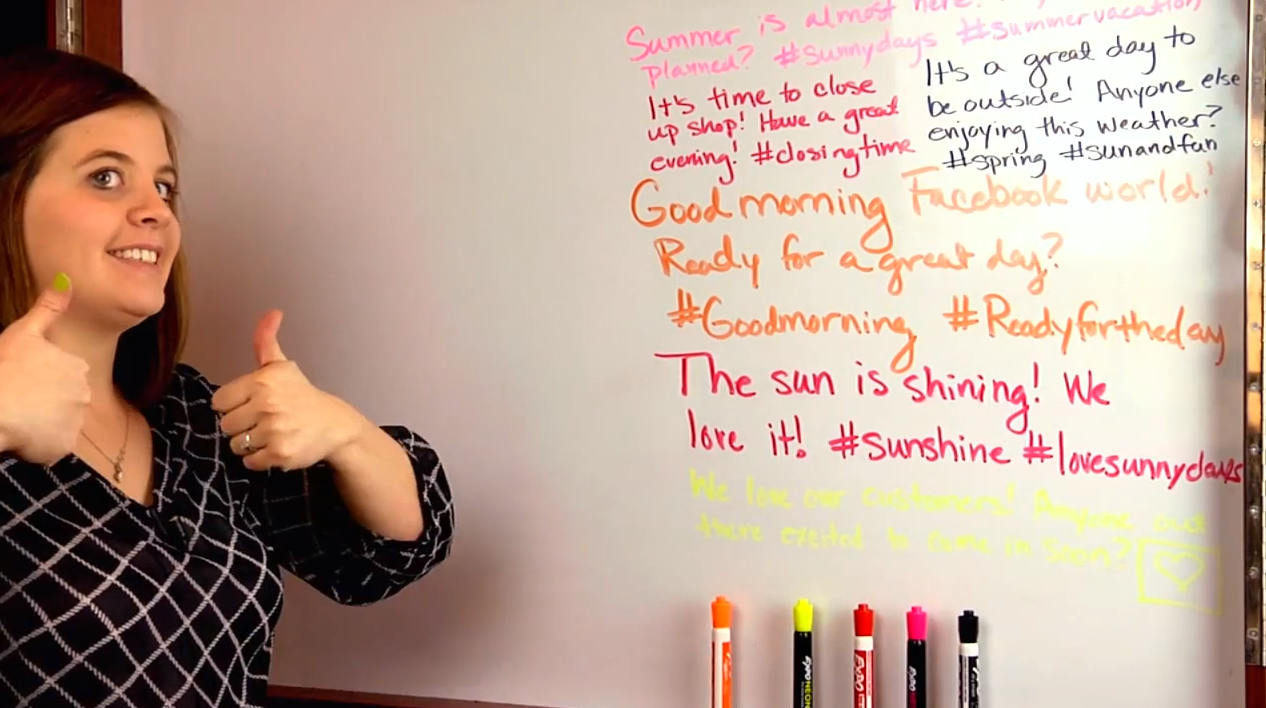 Summer is almost here!
planned? #sunnydays #summervacation
It's time to close
up shop! Have a great
evening! #closingtime
It's a great day to
be outside! Anyone else
enjoying this weather?
#spring #sunandfun
Good morning Facebook world!
Ready for a great day?
#Goodmorning #Readyfortheday
The sun is shining! We
love it! #sunshine #lovesunnydays
We love our customers! Anyone out
there excited to come in soon?
EXPO NEON
EXPO
EXPO
EXPO